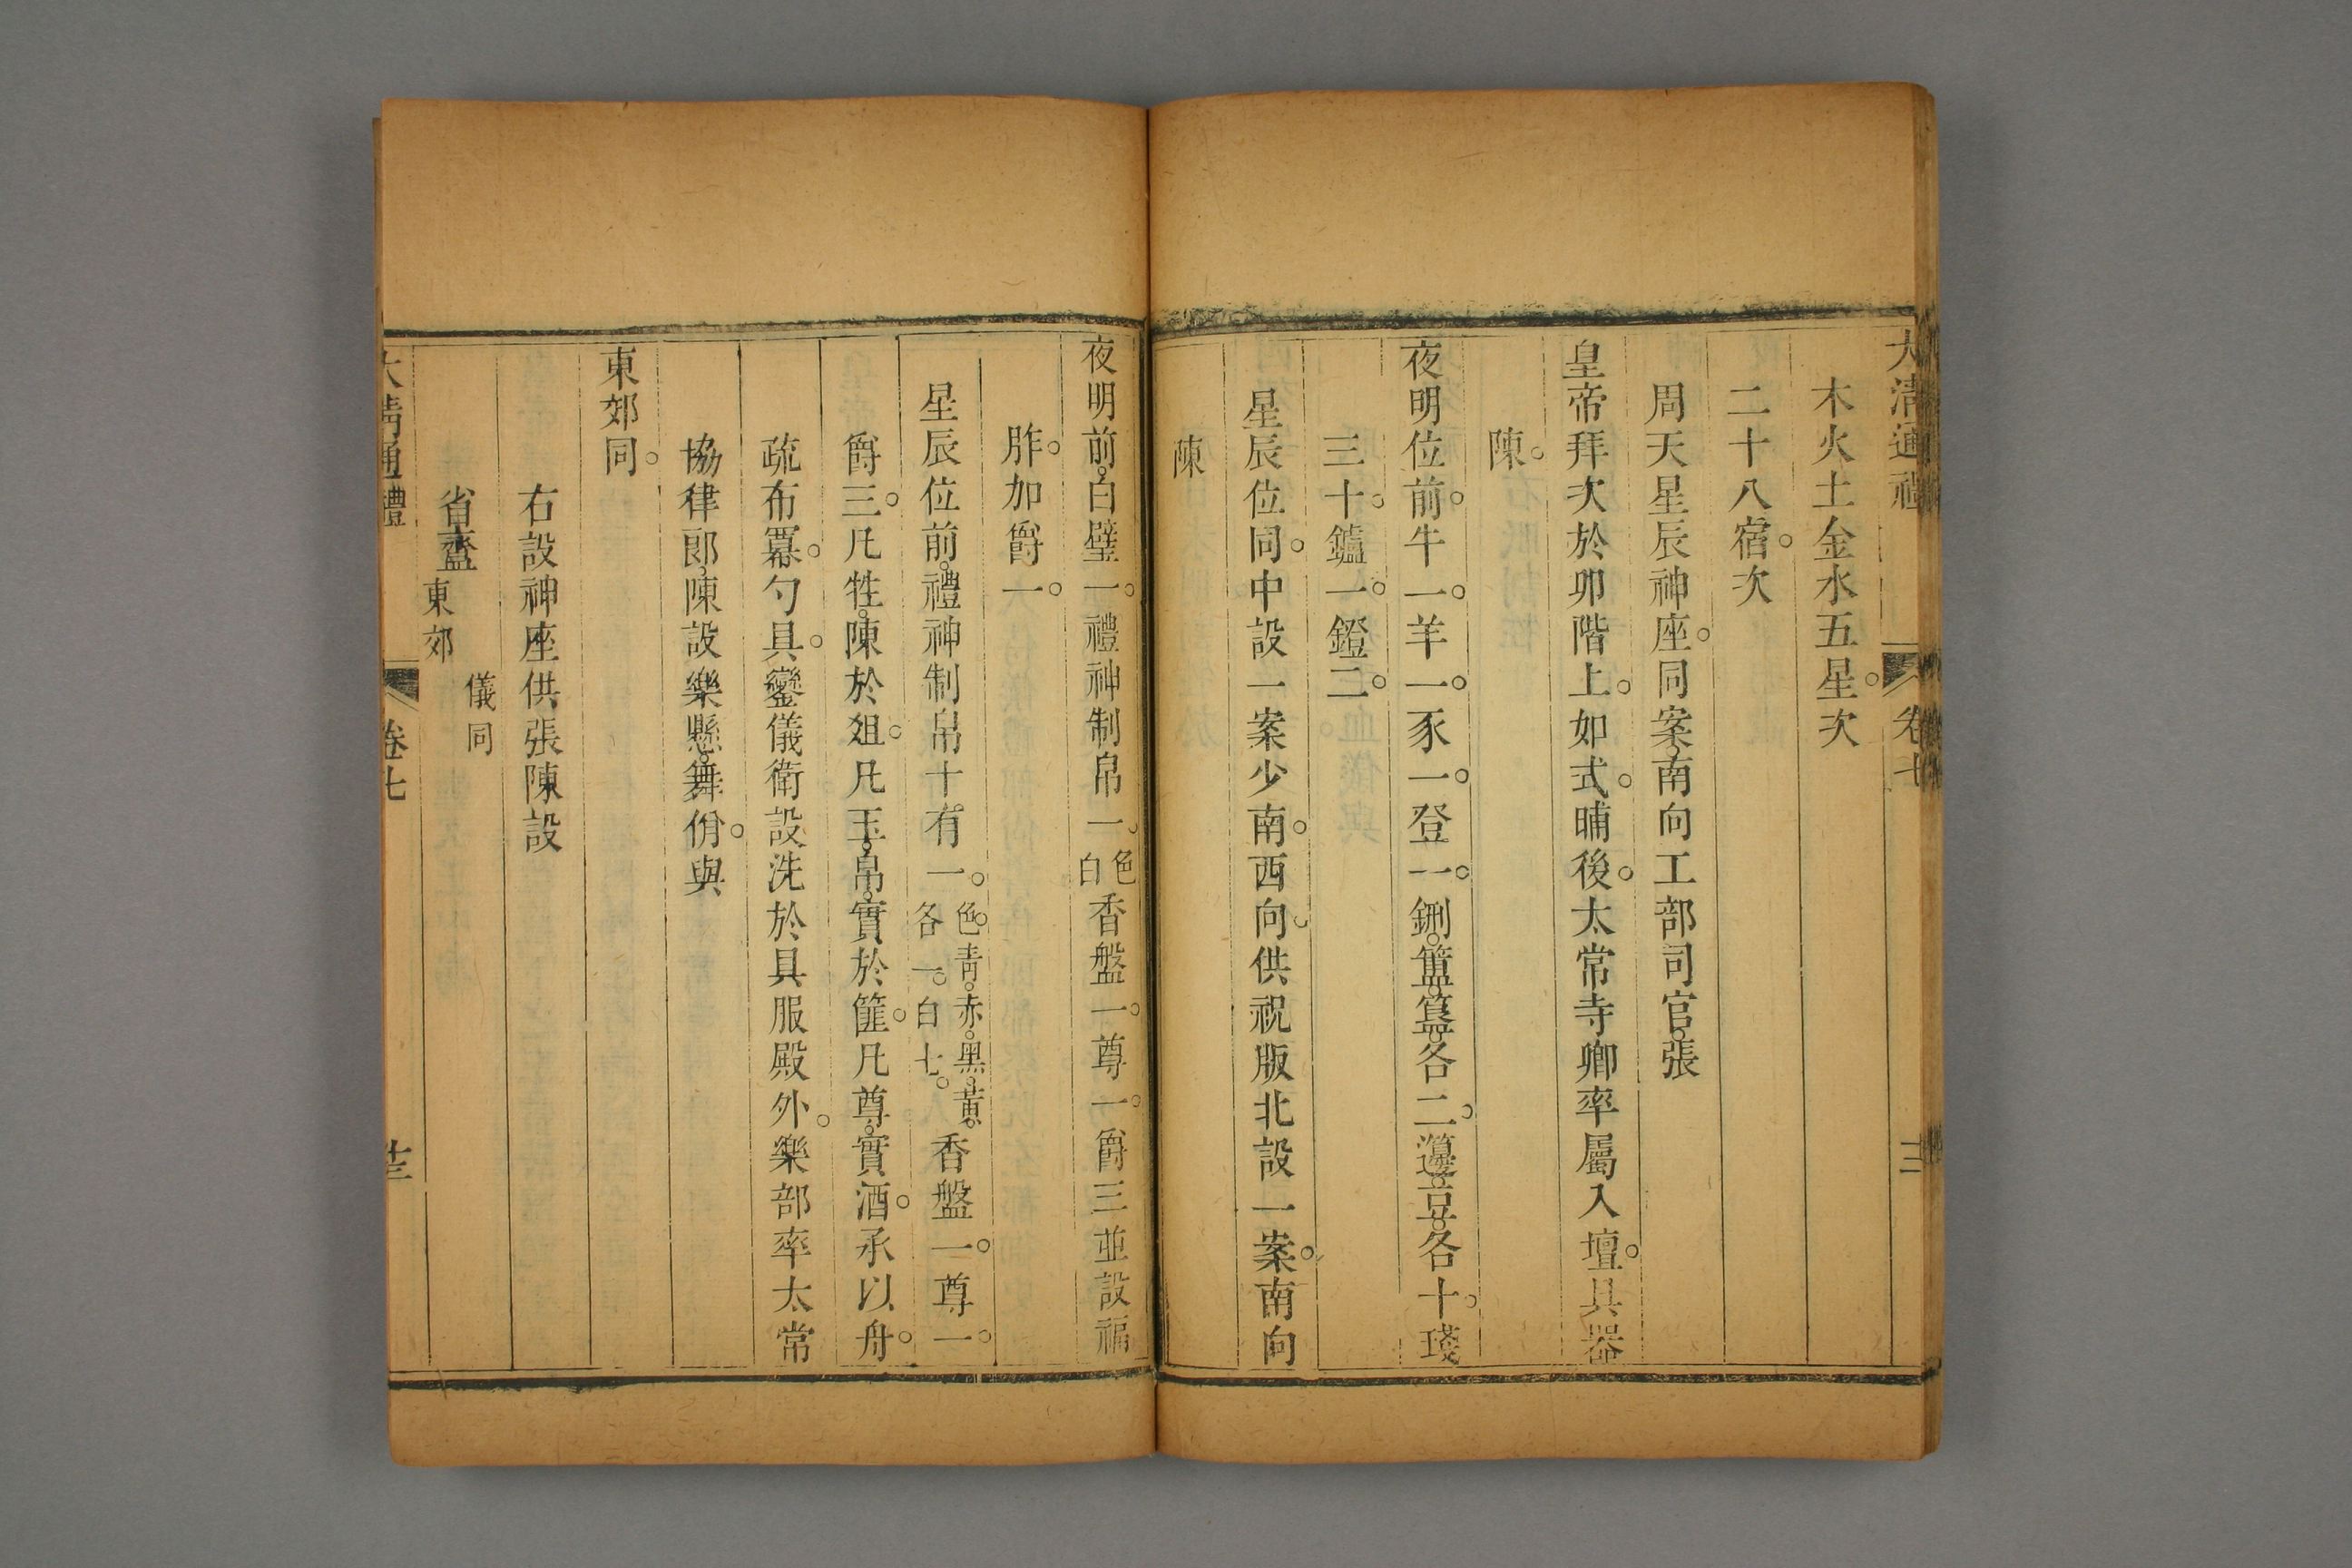 大清通禮 卷七 三
木火土金水五星。次
二十八宿。次
周天星辰神座。同案。南向工部司官。張
皇帝拜次於卯階上。如式。晡後。太常寺卿率屬入壇。具器
陳。
夜明位前。牛一。羊一。豕一。登一。鉶。簠。簋。各二。籩。豆。各十。琖
三十。鑪一。鐙二。
星辰位同。中設一案少南。西向。供祝版北設一案。南向
陳
夜明前。白璧一。禮神制帛一。色白香盤一。尊一。爵三並設福
胙。加爵一。
星辰位前。禮神制帛十。有一。色。青。赤。黑。黃。各一。白七。香盤一。尊一。
爵三。凡牲。陳於俎。凡玉。帛。實於篚。凡尊。實酒。承以舟。
疏布冪。勺具。鑾儀衛設洗於具服殿外。樂部率太常
協律郎。陳設樂懸。舞佾。與
東郊同。
右設神座供張陳設
省齍東郊儀同
大清通禮 卷七